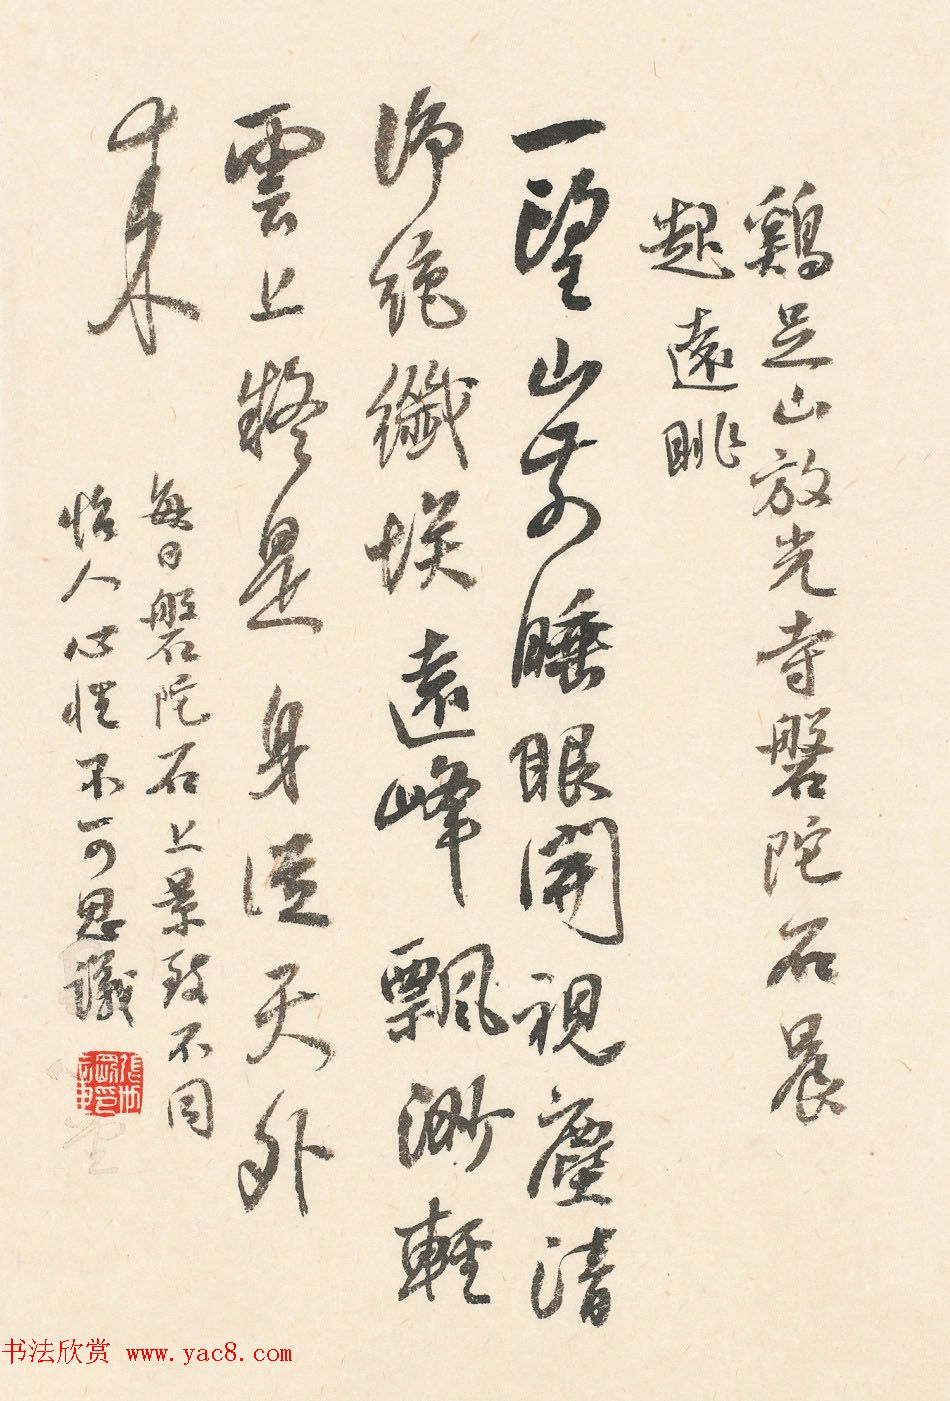 鷄足山放光寺磐陀石晨
起遠眺
一望山前睡眼開視塵清
淨絕纖埃遠峰飄渺輕
雲上疑是身從天外
來
每日磐陀石上景致不同
怡人心性不可思議
书法欣赏 www.yac8.com